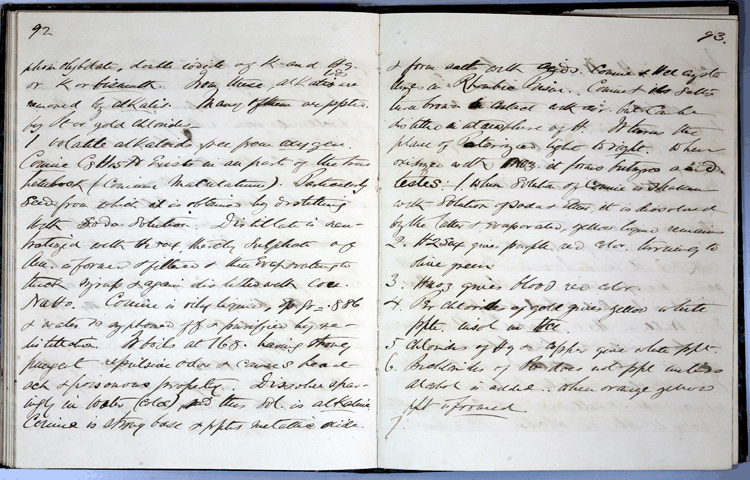 92
phomolybdate, double iodide of K and Hg
or K or bismuth. From these, alkaloids are
removed by alkalis. Many of them are ppted.
by Pt or gold chlorides
1 volatile alkaloids free from oxygen.
Conine C8H15N Exists in all parts of the
hemlock (Conium Maculatum). Particularly
seed from which it is obtained by distilling
with soda solution. Distillate is neu-
tralized with
is formed & filtered & then Evaporating to
thick syrup & again distilled with conc.
NaHO. Conine is oily liquid, sp gr = .886
& water is syphoned off & purified by re-
distillation. It boils at 168. having strong
pungent repulsive odor & causes head-
ach & poisonous property. Dissolves spar-
ingly in water (cold), and this sol. is alkaline
Conine is strong base & pptes metallic oxides.
93.
& form salts with acids. Conine & HCl crysta-
lize in Rhombic Prisms. Conine & its salts
turn brown in contact with air. but can be
distilled in atmosphere of H. It turns the
plane of Polarized light to right. When
oxidized with HNO3 it forms butyric acid
tests: 1. When solution of Conine is shaken
with solution of soda & ether it is dissolved
by the latter & evaporated, yellow liquid remains
2 H2SO4 gives purple red color. turning to
olive green
3. HNO3 gives blood red color.
4. Per chloride of gold gives yellow white
ppte. insol in HCl
5 Chlorides of Hg & Copper give white ppt.
6. Bichlorides of Pt does not ppt unless
alcohol is added.. when orange yellow
ppt is formed